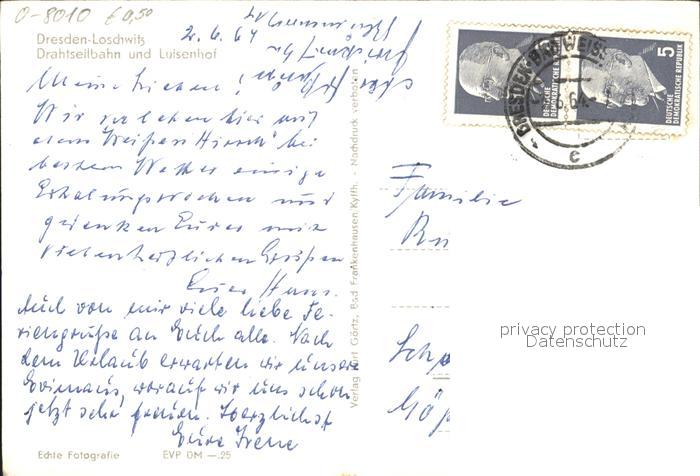 0-8010 € 0,50
Dresden-Loschwitz
Drahtseilbahn und Luisenhof
2.6.64
Meine Lieben!
Wir verleben hier auf
dem "Weißen Hirsch" bei
bestem Wetter einige
Erholungswochen und
gedenken Eurer mit
vielen herzlichen Grüßen
Euer Hans.
Auch von mir viele liebe Fe-
riengrüße an Euch alle. Nach
dem Urlaub erwarten wir unsere
worauf wir uns schon
jetzt sehr freuen. Herzlichst
Eure Irene
Echte Fotografie EVP DM —.25
Verlag Kurt Görtz, Bad Frankenhausen/Kyffh. - Nachdruck verboten
DRESDEN-BAD WEISS
6.64
e
DEUTSCHE
DEMOKRATISCHE REPUBLIK
5
DEUTSCHE
DEMOKRATISCHE REPUBLIK
Familie
privacy protection
Datenschutz